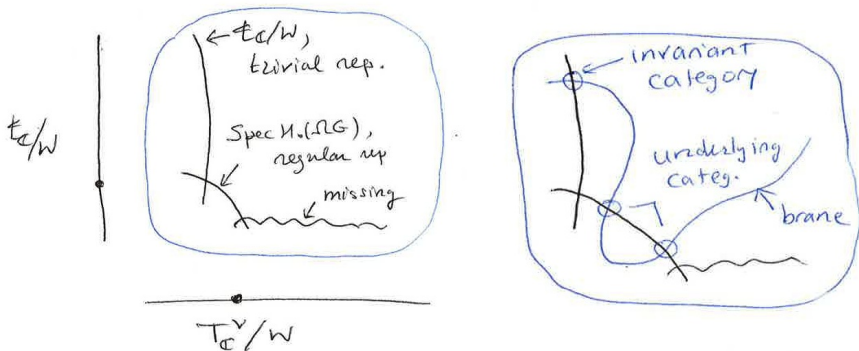 𝔱_ℂ/W
← 𝔱_ℂ/W,
trivial rep.
Spec H.(ΩG),
regular rep
missing
T_ℂ^∨/W
invariant
category
underlying
categ.
brane